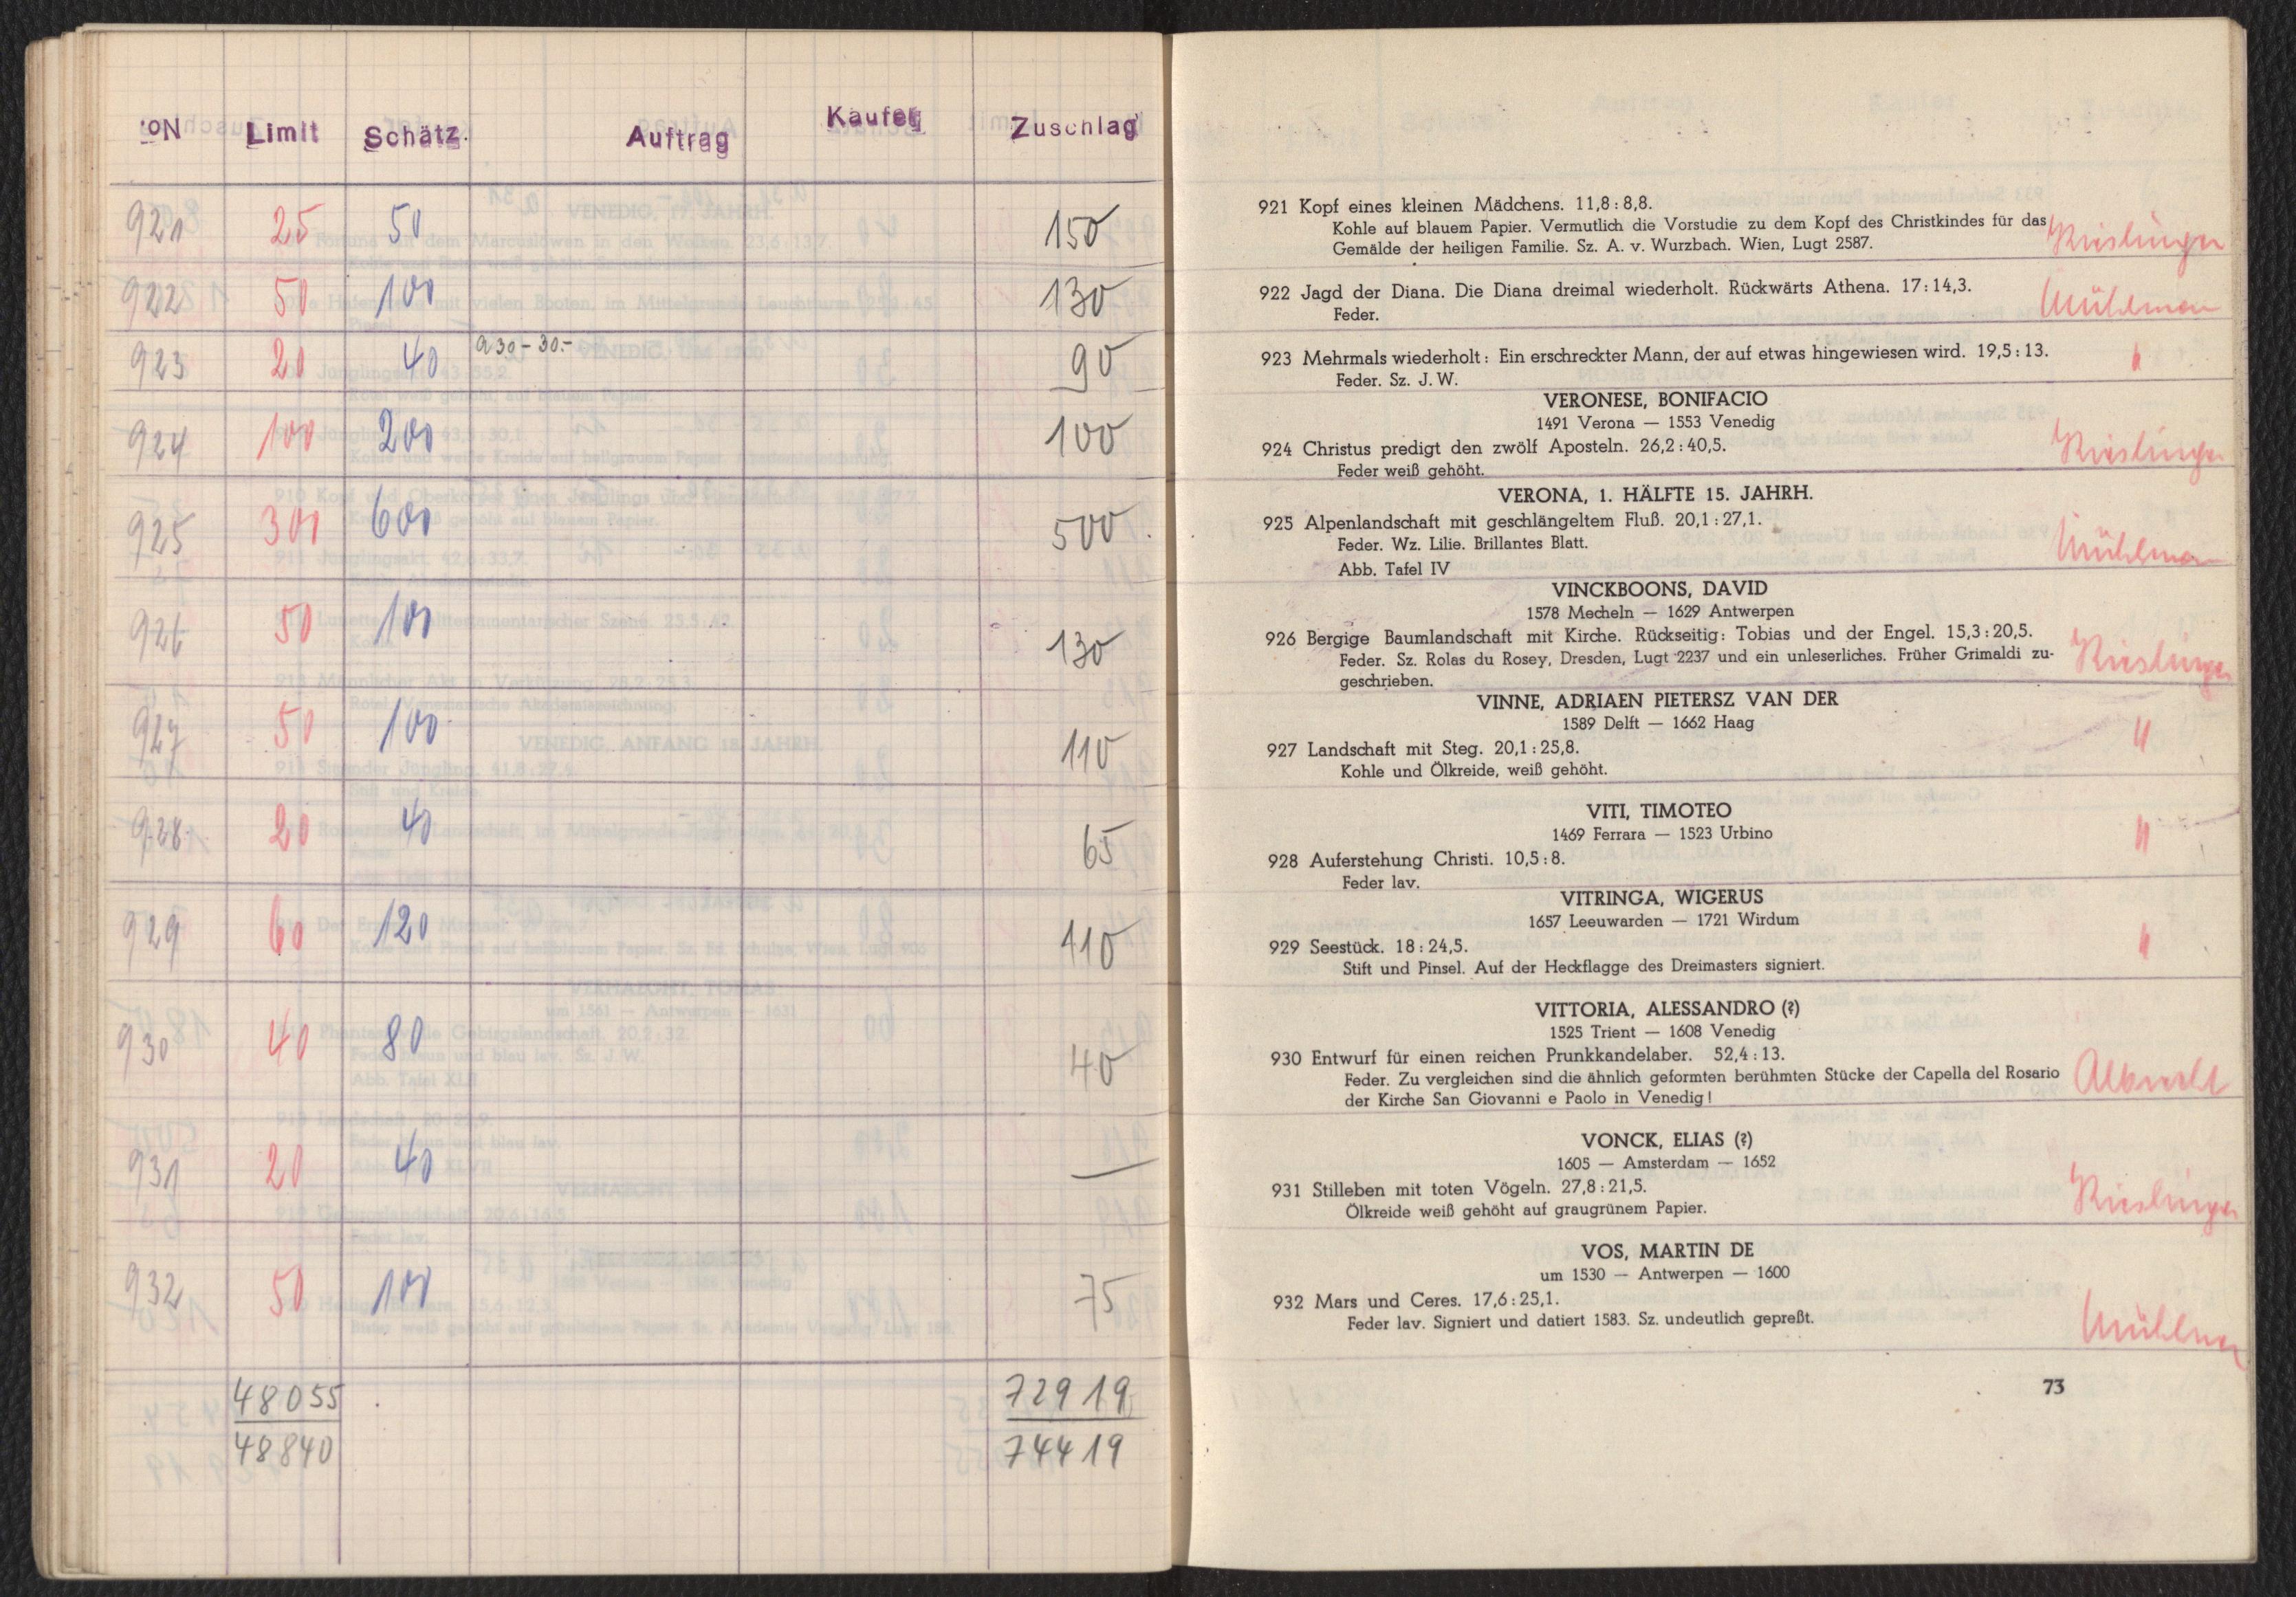 No. Limit Schätz. Auftrag Kaufer Zuschlag
921 25 50 150
922 50 100 130
923 20 40 a 30 - 30.- 90
924 100 200 100
925 300 600 500
926 50 100 130
927 50 100 110
928 20 40 65
929 60 120 110
930 40 80 40
931 20 40 —
932 50 100 75
48055 72919
48840 74419
921 Kopf eines kleinen Mädchens. 11,8 : 8,8.
Kohle auf blauem Papier. Vermutlich die Vorstudie zu dem Kopf des Christkindes für das
Gemälde der heiligen Familie. Sz. A. v. Wurzbach. Wien, Lugt 2587.
922 Jagd der Diana. Die Diana dreimal wiederholt. Rückwärts Athena. 17 : 14,3.
Feder.
Mühlman
923 Mehrmals wiederholt: Ein erschreckter Mann, der auf etwas hingewiesen wird. 19,5 : 13.
Feder. Sz. J. W.
"
VERONESE, BONIFACIO
1491 Verona — 1553 Venedig
924 Christus predigt den zwölf Aposteln. 26,2 : 40,5.
Feder weiß gehöht.
VERONA, 1. HÄLFTE 15. JAHRH.
925 Alpenlandschaft mit geschlängeltem Fluß. 20,1 : 27,1.
Feder. Wz. Lilie. Brillantes Blatt.
Abb. Tafel IV
Mühlman
VINCKBOONS, DAVID
1578 Mecheln — 1629 Antwerpen
926 Bergige Baumlandschaft mit Kirche. Rückseitig: Tobias und der Engel. 15,3 : 20,5.
Feder. Sz. Rolas du Rosey, Dresden, Lugt 2237 und ein unleserliches. Früher Grimaldi zu-
geschrieben.
VINNE, ADRIAEN PIETERSZ VAN DER
1589 Delft — 1662 Haag
927 Landschaft mit Steg. 20,1 : 25,8.
Kohle und Ölkreide, weiß gehöht.
"
VITI, TIMOTEO
1469 Ferrara — 1523 Urbino
928 Auferstehung Christi. 10,5 : 8.
Feder lav.
"
VITRINGA, WIGERUS
1657 Leeuwarden — 1721 Wirdum
929 Seestück. 18 : 24,5.
Stift und Pinsel. Auf der Heckflagge des Dreimasters signiert.
"
VITTORIA, ALESSANDRO (?)
1525 Trient — 1608 Venedig
930 Entwurf für einen reichen Prunkkandelaber. 52,4 : 13.
Feder. Zu vergleichen sind die ähnlich geformten berühmten Stücke der Capella del Rosario
der Kirche San Giovanni e Paolo in Venedig!
Albrecht
VONCK, ELIAS (?)
1605 — Amsterdam — 1652
931 Stilleben mit toten Vögeln. 27,8 : 21,5.
Ölkreide weiß gehöht auf graugrünem Papier.
VOS, MARTIN DE
um 1530 — Antwerpen — 1600
932 Mars und Ceres. 17,6 : 25,1.
Feder lav. Signiert und datiert 1583. Sz. undeutlich gepreßt.
Mühlman
73